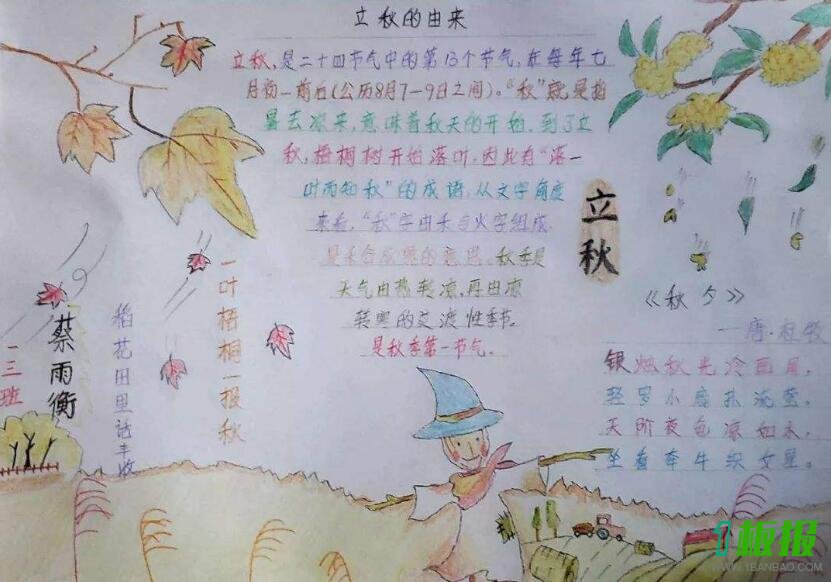 立秋的由来
立秋,是二十四节气中的第13个节气,在每年七
月初一前后(公历8月7—9日之间)。“秋”就是指
暑去凉来,意味着秋天的开始。到了立
秋,梧桐树开始落叶,因此有“落一
叶而知秋”的成语。从文字角度
来看,“秋”字由禾与火字组成,
是禾谷成熟的意思。秋季是
天气由热转凉,再由凉
转寒的交渡性季节。
是秋季第一节气。
立秋
《秋夕》
—唐·杜牧
银烛秋光冷画屏,
轻罗小扇扑流萤。
天阶夜色凉如水,
坐看牵牛织女星。
一叶梧桐一报秋
稻花田里话丰收
蔡雨衡
一三班
1板报
WWW.1BANBAO.COM